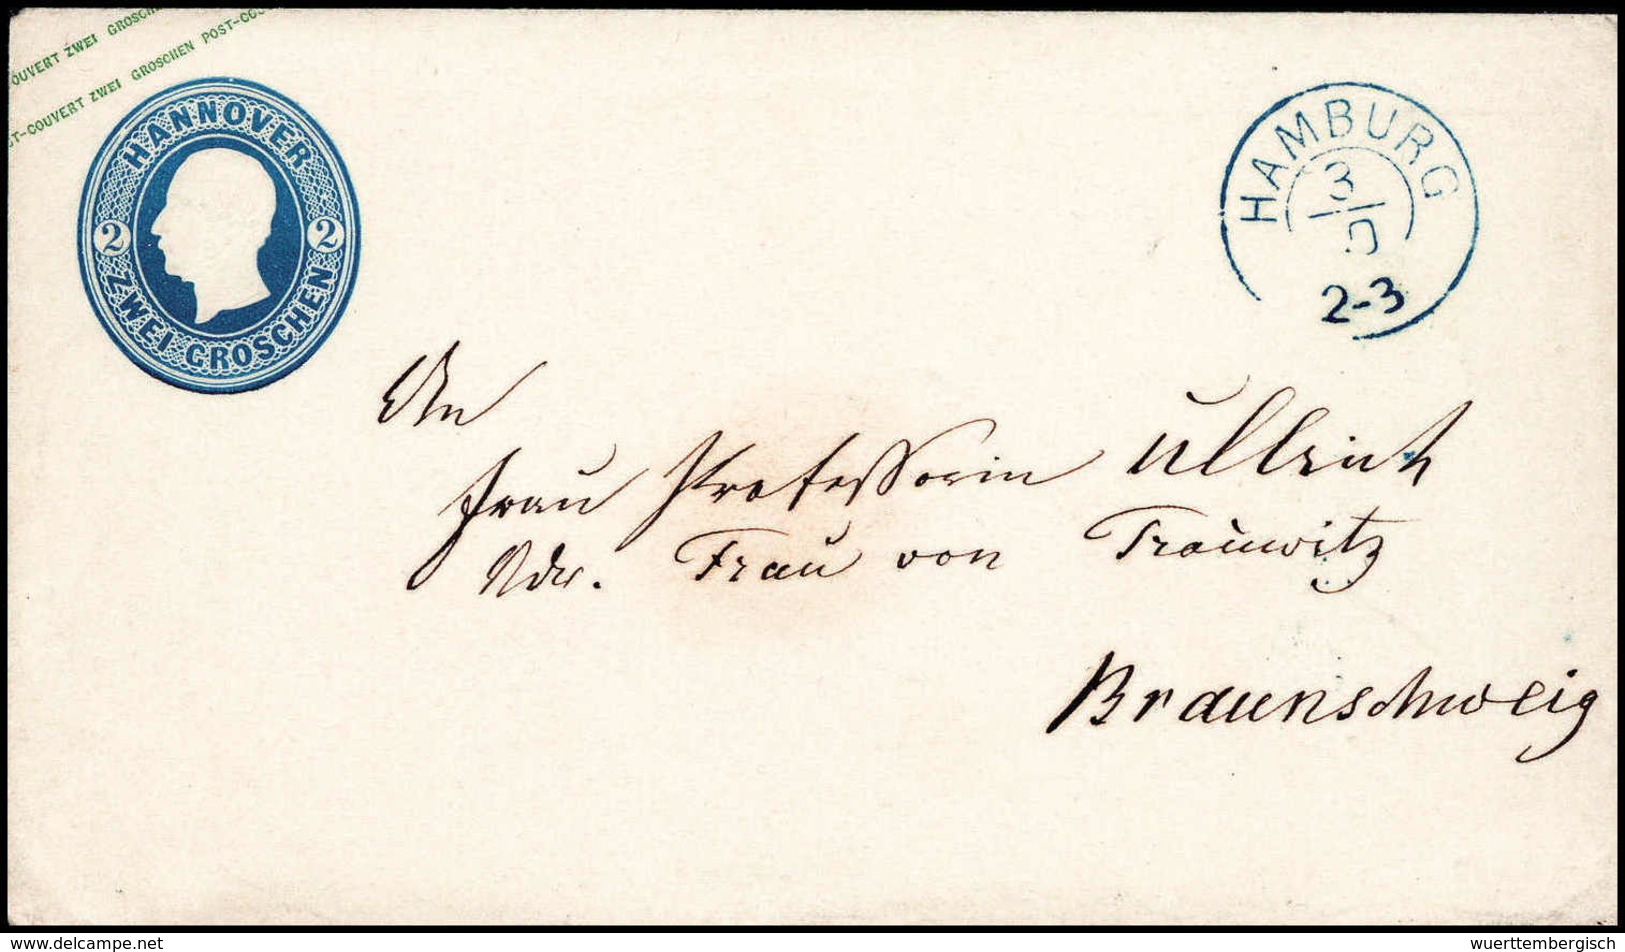 OUVERT ZWEI GROSCHEN
ST-COUVERT ZWEI GROSCHEN POST-COU
HANNOVER
2 2
ZWEI GROSCHEN
HAMBURG
3
2-3
An
Frau Professorin
Adr. Frau von
Braunschweig
© www.delcampe.net
wuerttembergisch